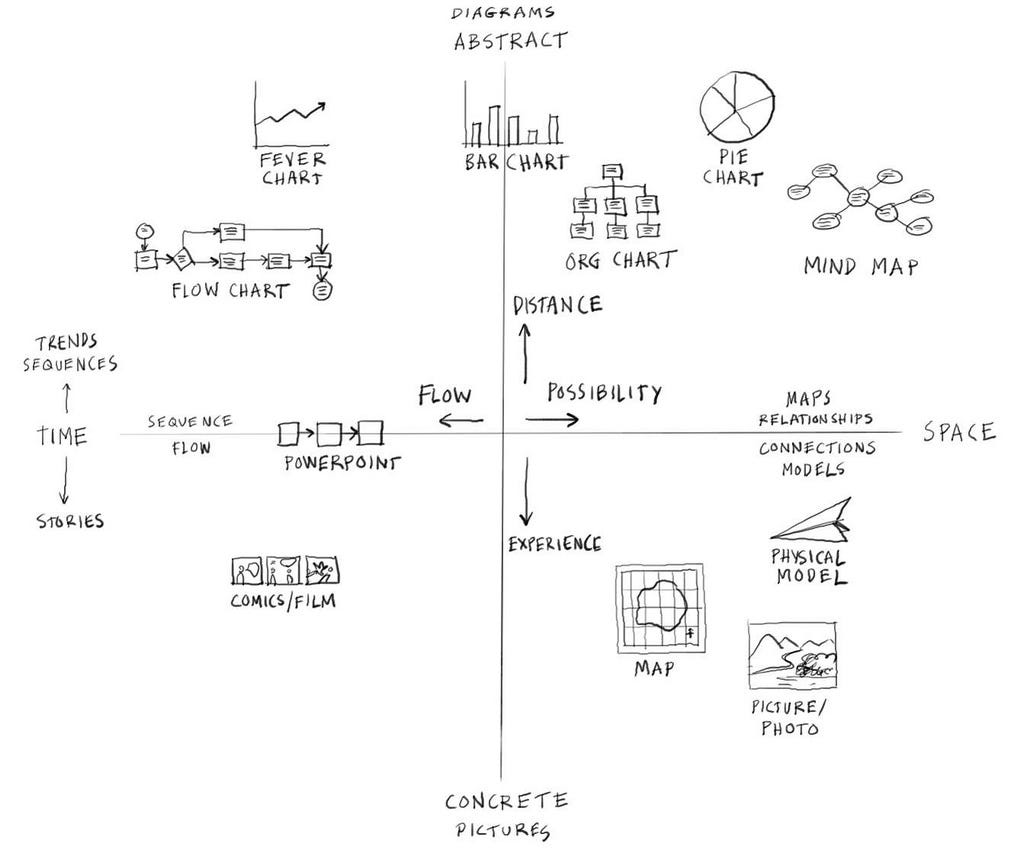 DIAGRAMS
ABSTRACT
FEVER
CHART
BAR CHART
PIE
CHART
ORG CHART
MIND MAP
FLOW CHART
DISTANCE
TRENDS
SEQUENCES
FLOW
POSSIBILITY
MAPS
RELATIONSHIPS
TIME
SEQUENCE
FLOW
POWERPOINT
SPACE
CONNECTIONS
MODELS
STORIES
EXPERIENCE
PHYSICAL
MODEL
COMICS/FILM
MAP
PICTURE/
PHOTO
CONCRETE
PICTURES